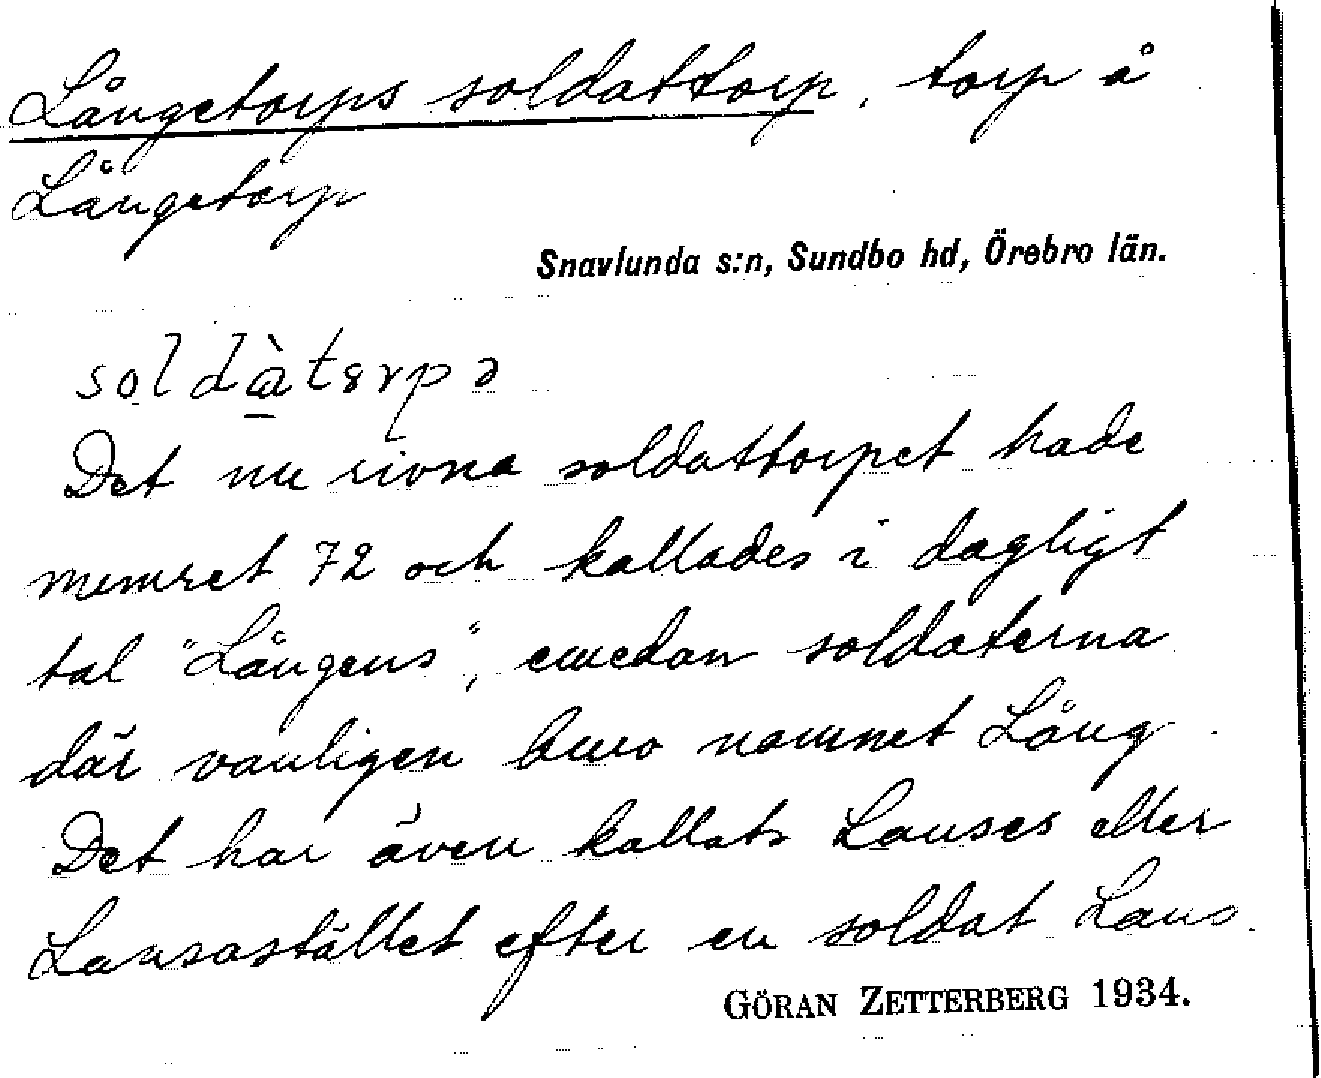 Långetorps soldattorp, torp å
Långetorp
Snavlunda s:n, Sundbo hd, Örebro län.
soldàtɜrpə
Det nu rivna soldattorpet hade
numret 72 och kallades i dagligt
tal "Långens", emedan soldaterna
där vanligen buro namnet Lång.
Det har även kallats Lanses eller
Lansastället efter en soldat Lans.
GÖRAN ZETTERBERG 1934.